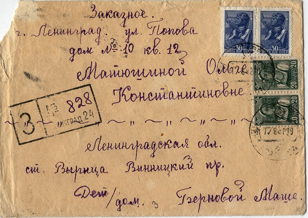 Заказное.
г. Ленинград ул. Попова
дом № 10 кв. 12
Матюшиной Ольге
Константиновне
З
№ 828
Ленинградская обл.
ст. Вырица Винницкий пр.
Дет/дом. Берновой Маше.
30
30